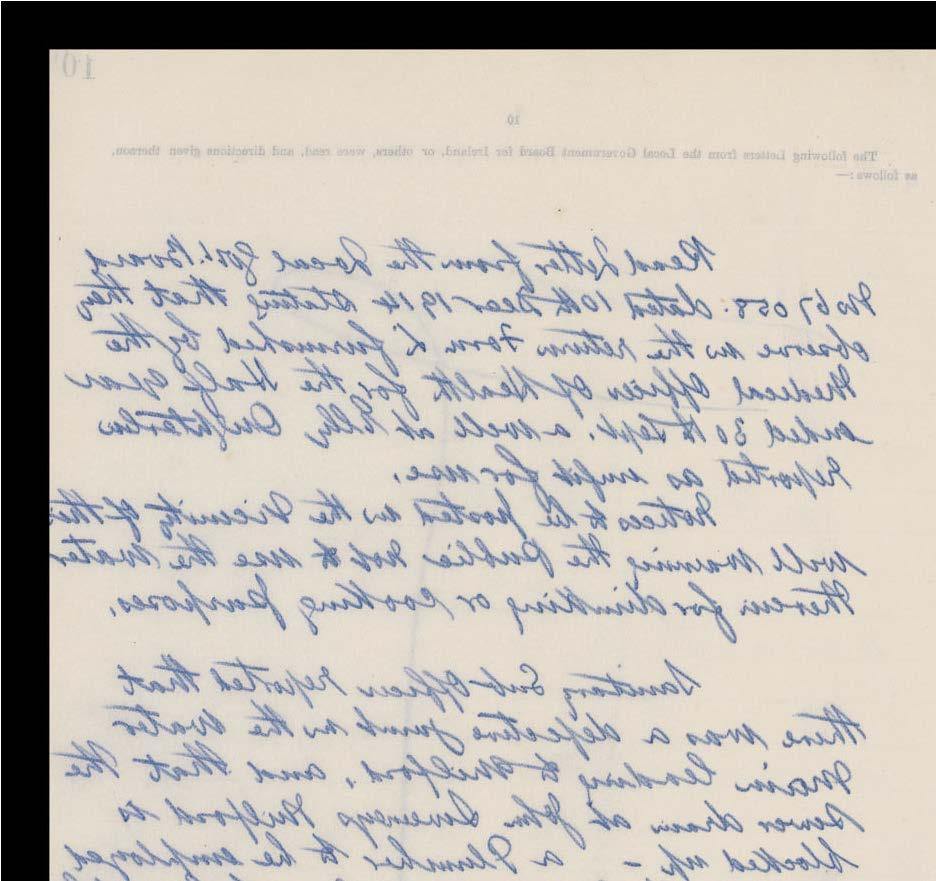 10
10
The following Letters from the Local Government Board for Ireland, or others, were read, and directions given thereon,
as follows:—
Read Letter from the Local Govt. Board
No 67058. dated 10th Decr 1914 stating that they
observe in the return Form L furnished by the
Medical Officer of Health for the Half year
ended 30th Sept. a well at Tully
reported as unfit for use.
Notices to be posted in the vicinity of this
well warning the public not to use the water
therein for drinking or cooking purposes.
Sanitary Sub-Officer reported that
there was a defective joint in the Water
Main leading to Milford, and that the
Sewer drain at John Sweeneys Milford is
blocked up – a Plumber to be employed